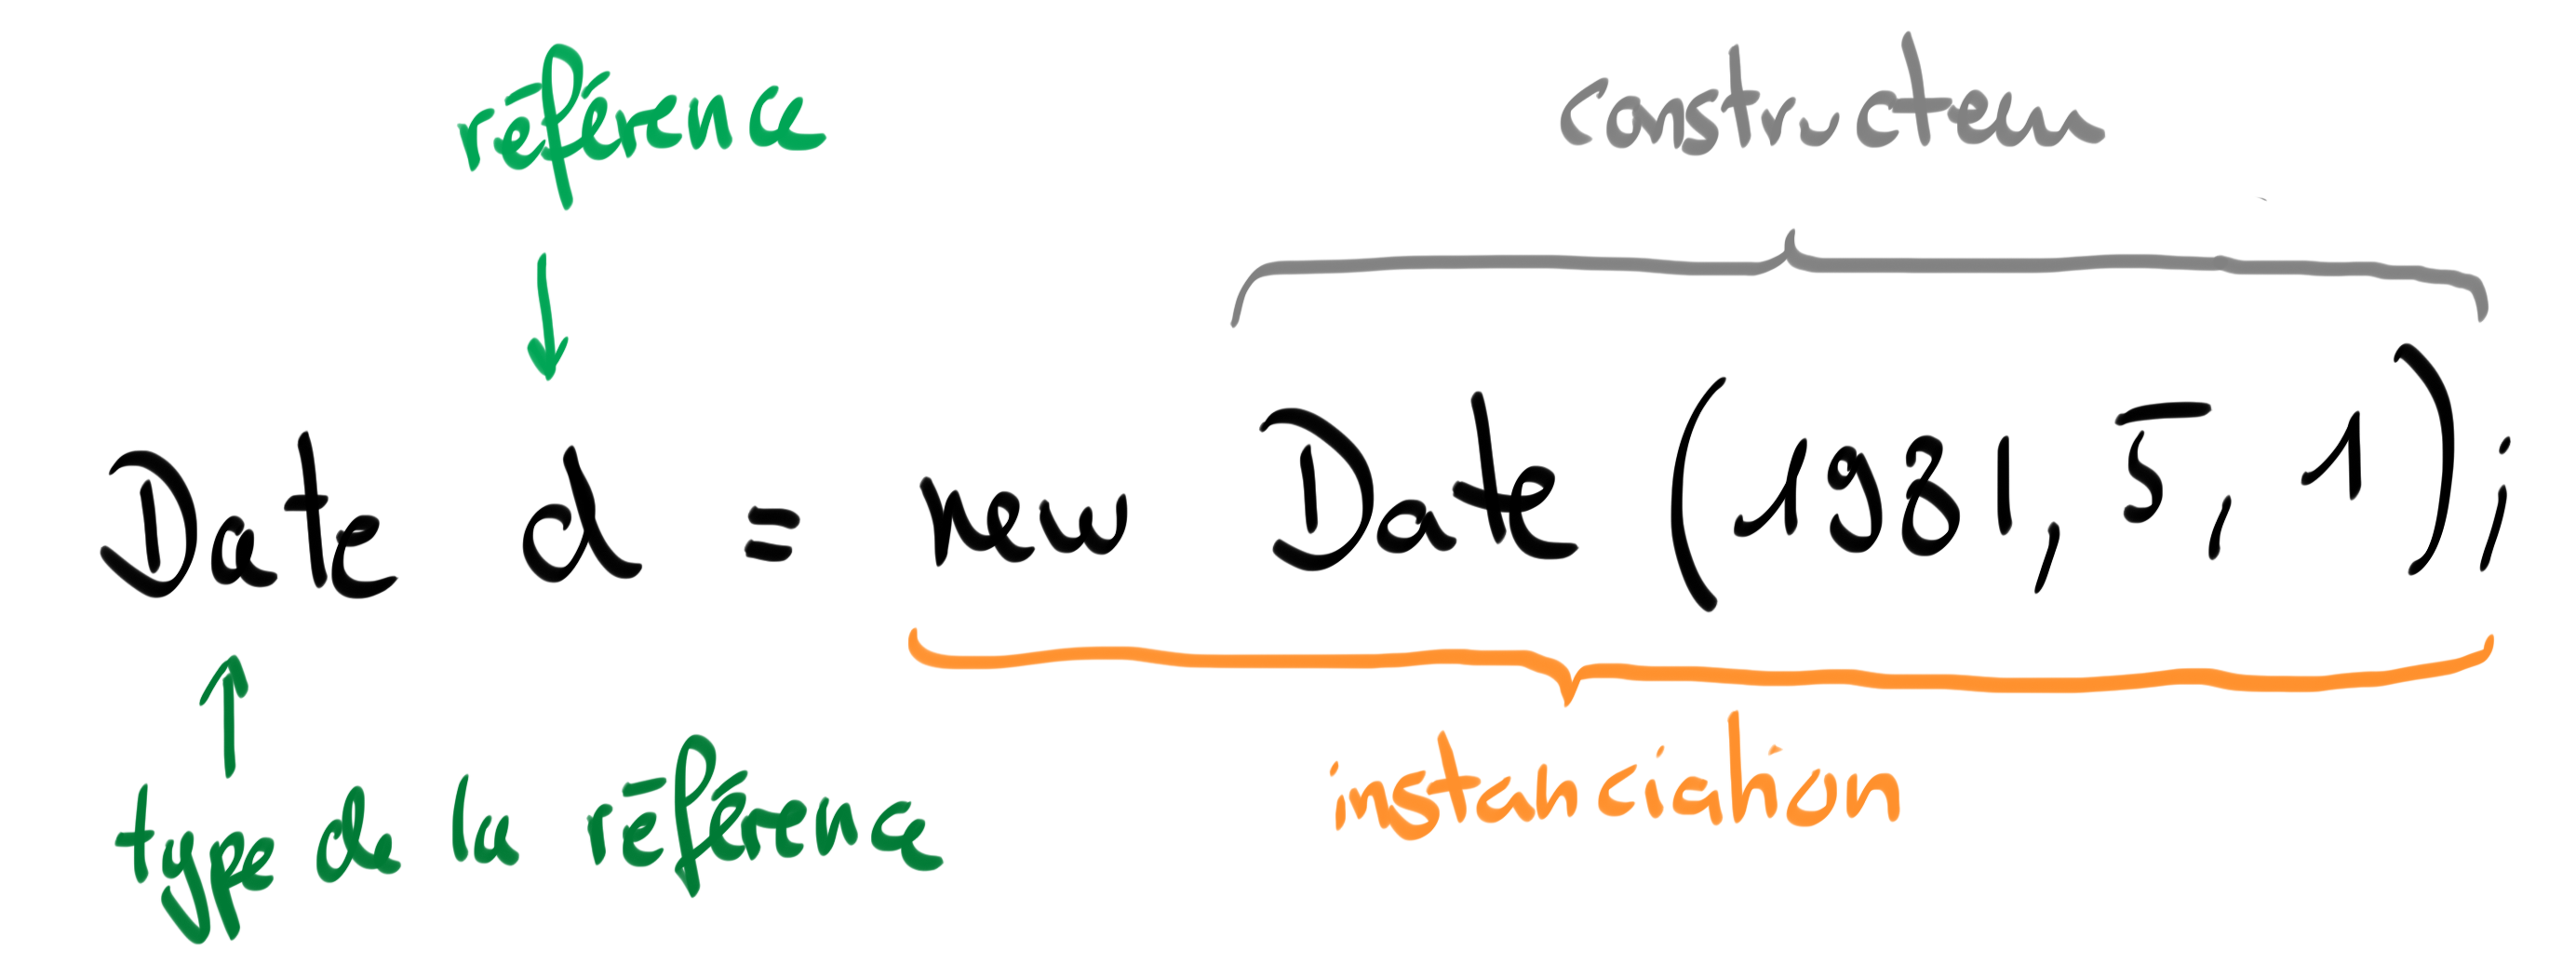 référence
constructeur
Date d = new Date (1981, 5, 1);
type de la référence
instanciation